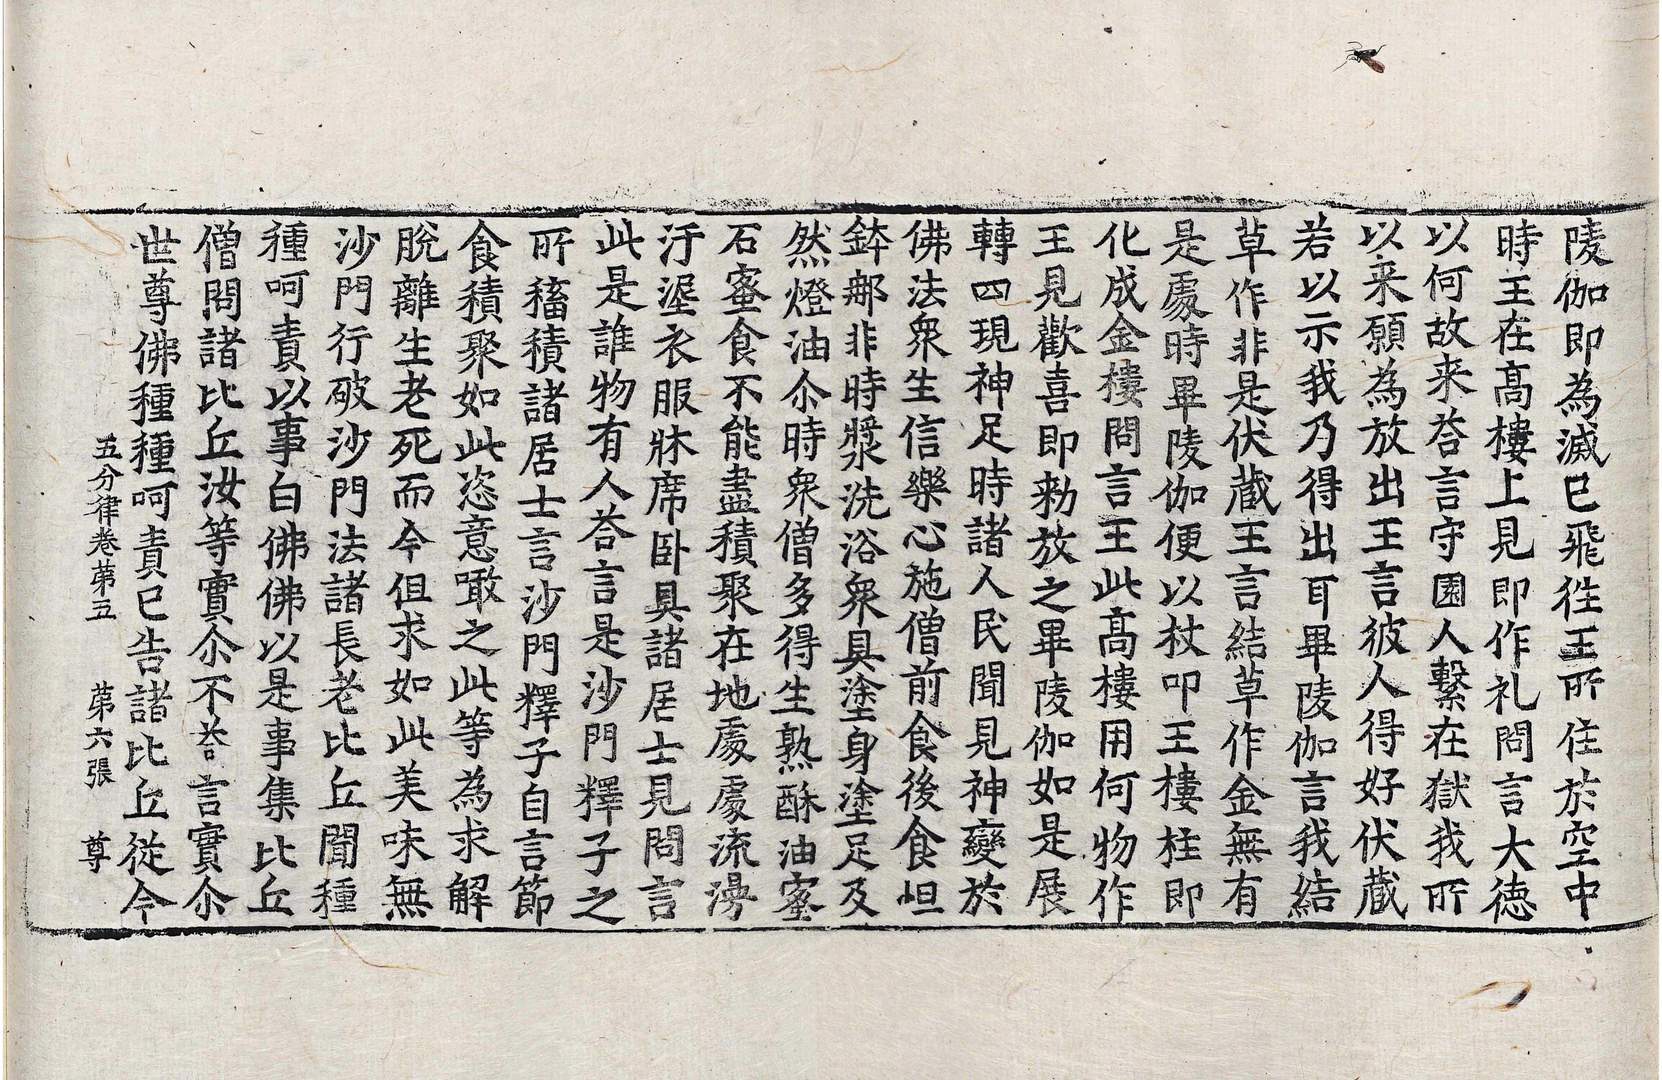 陵伽即為滅已飛往王所住於空中
時王在髙樓上見即作礼問言大德
以何故来荅言守園人繫在獄我所
以来願為放出王言彼人得好伏蔵
若以示我乃得出耳畢陵伽言我結
草作非是伏蔵王言結草作金無有
是處時畢陵伽便以杖叩王樓柱即
化成金樓問言王此髙樓用何物作
王見歡喜即勑放之畢陵伽如是展
轉四現神足時諸人民聞見神變於
佛法衆生信樂心施僧前食後食怛
鉢郍非時漿洗浴衆具塗身塗足及
然燈油尒時衆僧多得生熟酥油蜜
石蜜食不能盡積聚在地處處流漫
汙埿衣服牀席卧具諸居士見問言
此是誰物有人荅言是沙門釋子之
所稸積諸居士言沙門釋子自言節
食積聚如此恣意噉之此等為求解
脫離生老死而今但求如此美味無
沙門行破沙門法諸長老比丘聞種
種呵責以事白佛佛以是事集比丘
僧問諸比丘汝等實尒不荅言實尒
世尊佛種種呵責已告諸比丘從今
五分律卷苐五　苐六張　尊